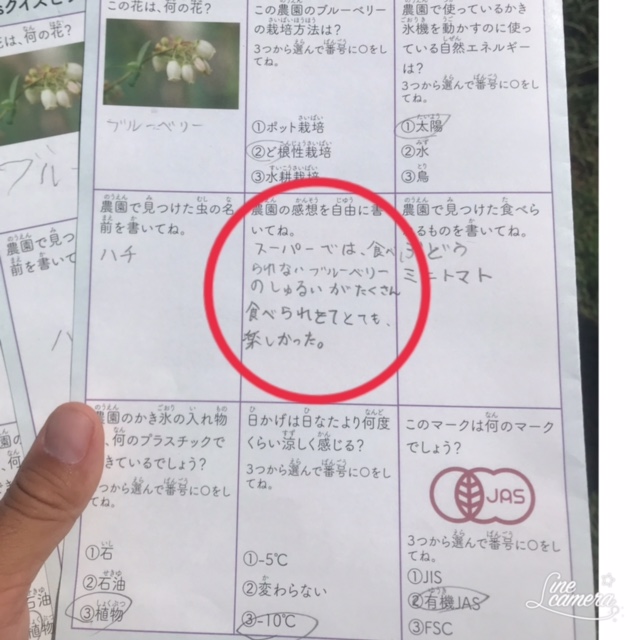 クイズビン
は、何の花?
ブルー
農園で見つ
前を書いて
ハ
この花は、何の花?
ブルーベリー
この農園のブルーベリー
の栽培方法は?
3つから選んで番号に○をし
てね。
①ポット栽培
②ど根性栽培
③水耕栽培
農園で使っているかき
氷機を動かすのに使っ
ている自然エネルギー
は?
3つから選んで番号に○をし
てね。
①太陽
②水
③鳥
農園で見つけた虫の名
前を書いてね。
ハチ
農園の感想を自由に書
いてね。
スーパーでは、食べ
られないブルーベリー
のしゅるいがたくさん
食べられてとても、
楽しかった。
農園で見つけた食べら
るものを書いてね。
ぶどう
ミニトマト
農園のかき氷の入れ物
、何のプラスチックで
きているでしょう?
3つから選んで番号に○をし
てね。
①石
②石油
③植物
日かげは日なたより何度
くらい涼しく感じる?
3つから選んで番号に○をし
てね。
①-5℃
②変わらない
③-10℃
このマークは何のマーク
でしょう?
JAS
3つから選んで番号に○をし
てね。
①JIS
②有機JAS
③FSC
Line
camera